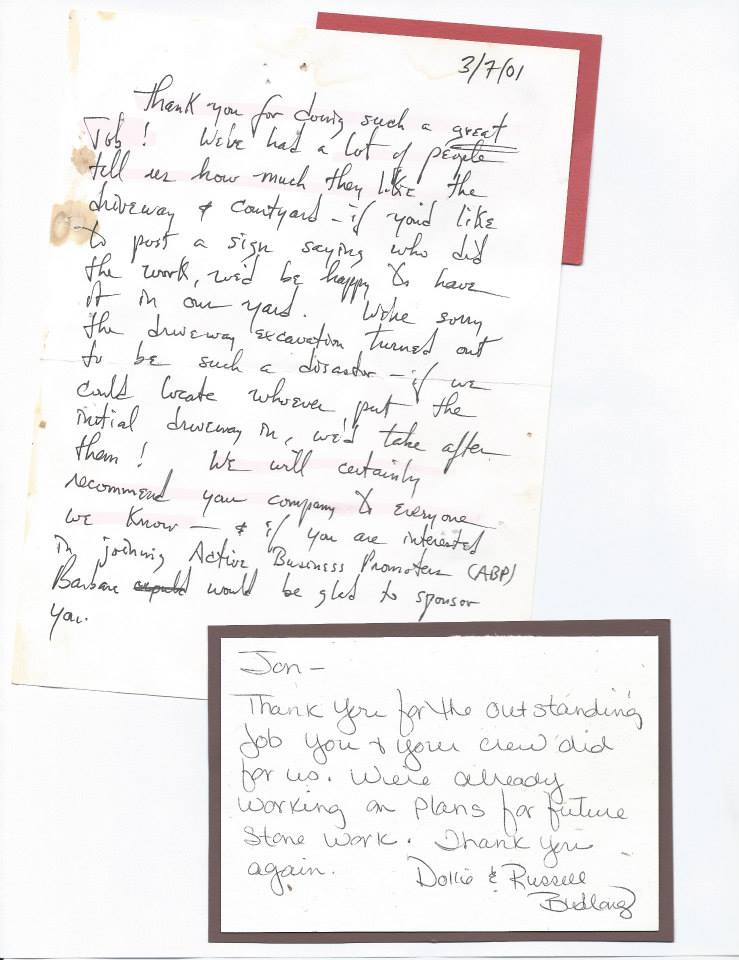 3/7/01
Thank you for doing such a great
Job! We've had a lot of people
tell us how much they like the
driveway & courtyard - if you'd like
to post a sign saying who did
the work, we'd be happy to have
it in our yard. We're sorry
the driveway excavation turned out
to be such a disaster - if we
could locate whoever put the
initial driveway in, we'd take after
them! We will certainly
recommend your company to everyone
we know - & if you are interested
in joining Active Business Promoters (ABP)
Barbara would be glad to sponsor
you.
Jon -
Thank you for the outstanding
job you & your crew did
for us. We're already
working on plans for future
stone work. Thank you
again. Dollie & Russell
Budlong